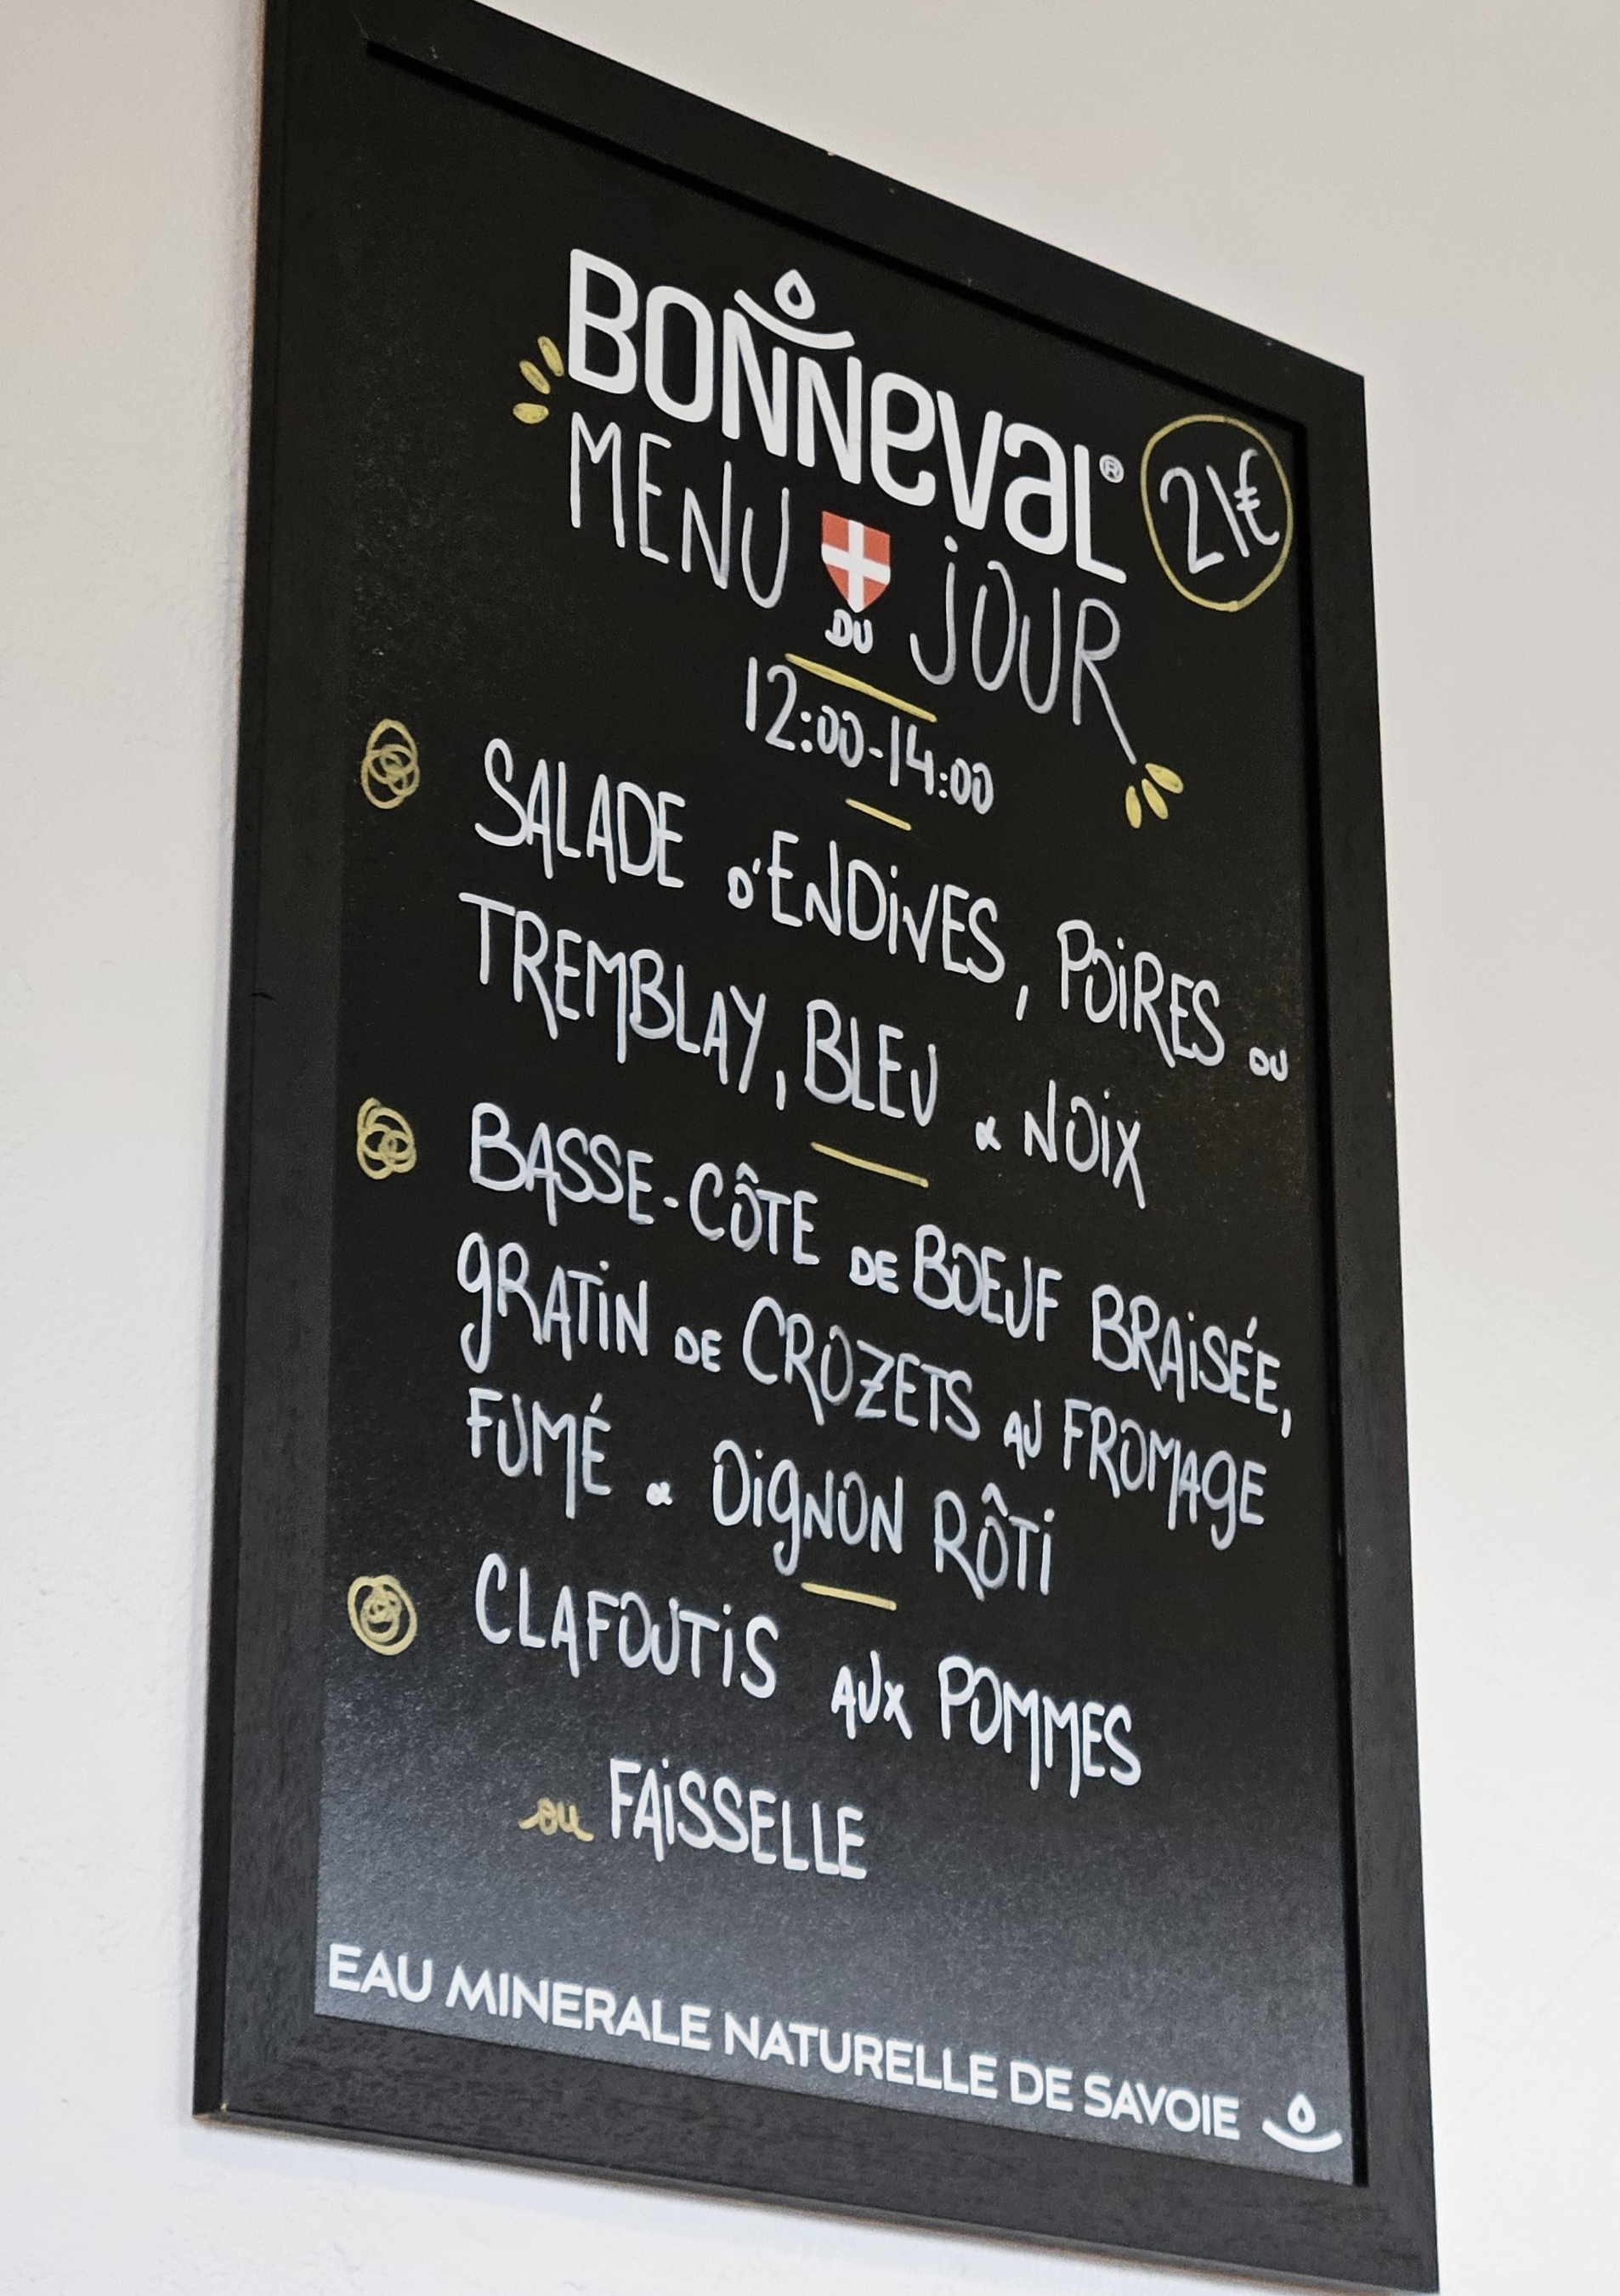 BONNEVAL®
21€
MENU DU JOUR
12:00-14:00
SALADE D'ENDIVES, POIRES DU
TREMBLAY, BLEU & NOIX
BASSE-CÔTE DE BOEUF BRAISÉE,
GRATIN DE CROZETS AU FROMAGE
FUMÉ & OIGNON RÔTI
CLAFOUTIS AUX POMMES
ou FAISSELLE
EAU MINERALE NATURELLE DE SAVOIE